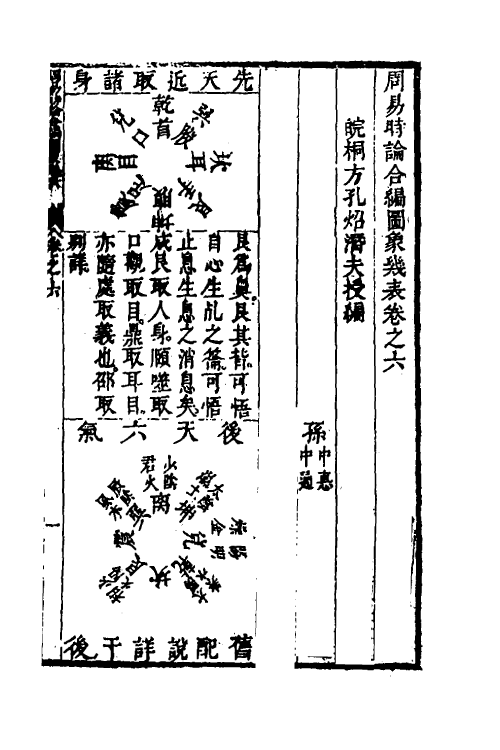 周易時論合編圖象幾表卷之六
皖桐方孔炤潛夫授編
孫
中德
中通
先天近取諸身
乾首
兌口
離目
震足
坤腹
艮手
坎耳
巽股
艮爲鼻艮其背可悟
自心生死之籥可悟
止息生息之消息矣
咸艮取人身頤噬取
口觀取目鼎取耳目
亦隨處取義也邵取
別詳
後天六氣
少陰
君火
離
坤
兌
乾
坎
艮
震
巽
陽明
舊配說詳于後
卷之六
一